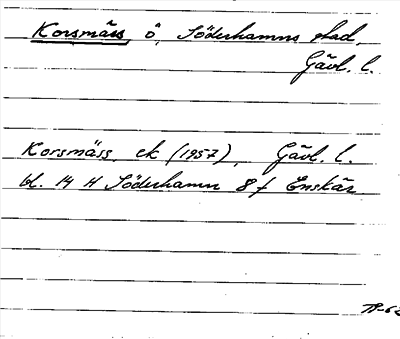 Korsmäss, ö, Söderhamns stad,
Gävl. l.
Korsmäss ek (1957), Gävl. l.
bl. 14 H Söderhamn 8 f Enskär